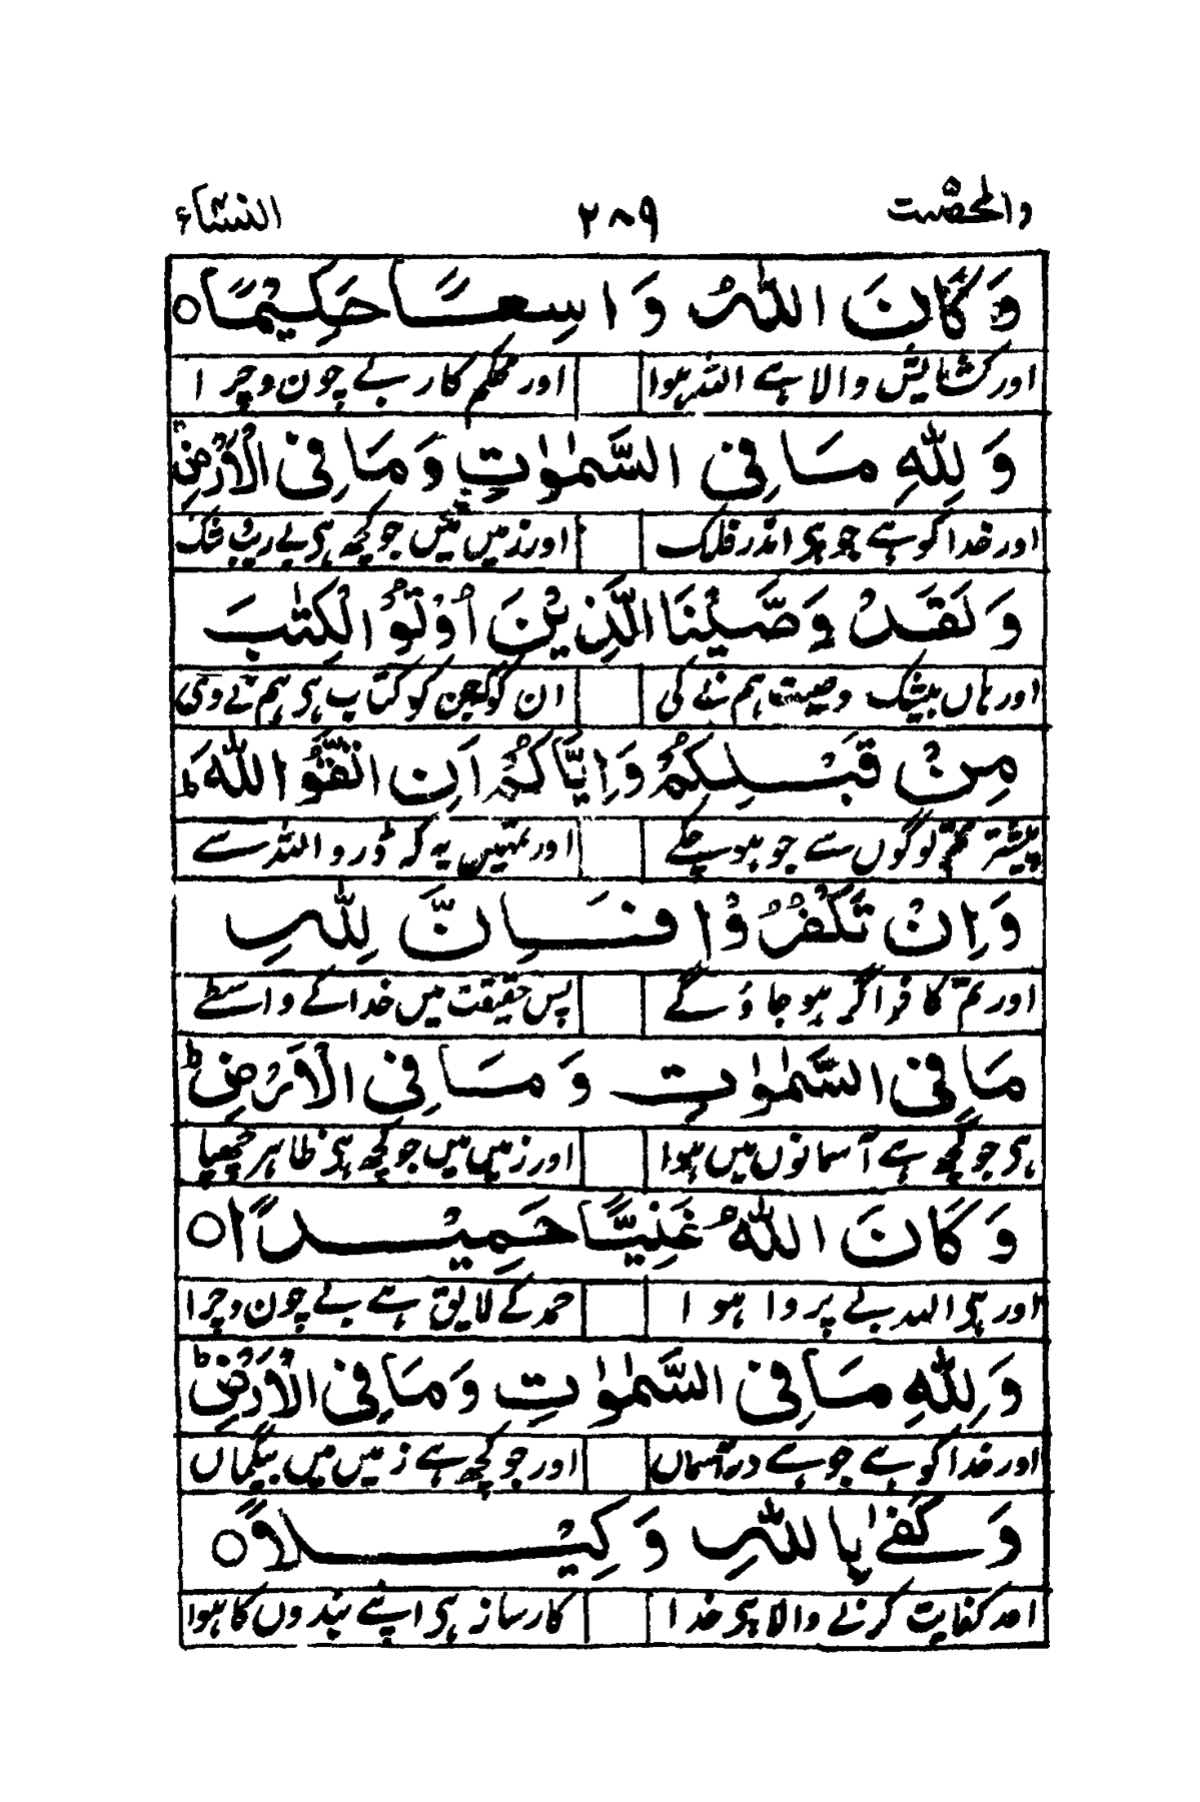 والمحصنت ۲۸۹ النساء
وَ كَانَ اللّٰهُ وَاسِعًا حَكِيْمًا ○
اور کشایش والا ہے اللہ ہوا اور محکم کار بے چون و چرا
وَ لِلّٰهِ مَا فِى السَّمٰوٰتِ وَ مَا فِى الْاَرْضِ
اور خدا کو ہے جو ہی اندر فلک اور زمیں میں جو کچھ ہی بے ریب شک
وَ لَقَدْ وَصَّيْنَا الَّذِيْنَ اُوْتُوا الْكِتٰبَ
اور ہاں بیشک وصیت ہم نے کی ان کو جن کو کتاب ہی ہم نے دی
مِنْ قَبْلِكُمْ وَاِيَّاكُمْ اَنِ اتَّقُوا اللّٰهَ ؕ
پیشتر تم لوگوں سے جو ہو چکے اور تمہیں یہ کہ ڈرو اللہ سے
وَاِنْ تَكْفُرُوْا فَاِنَّ لِلّٰهِ
اور تم کافر اگر ہو جاؤ گے پس حقیقت میں خدا کے واسطے
مَا فِى السَّمٰوٰتِ وَ مَا فِى الْاَرْضِ ؕ
ہی جو کچھ ہے آسمانوں میں ہوا اور زمیں میں جو کچھ ہی ظاہر چھپا
وَ كَانَ اللّٰهُ غَنِيًّا حَمِيْدًا ○
اور ہی اللہ بے پروا ہوا حمد کے لایق ہے بے چون و چرا
وَ لِلّٰهِ مَا فِى السَّمٰوٰتِ وَ مَا فِى الْاَرْضِ ؕ
اور خدا کو ہے جو ہے در آسماں اور جو کچھ ہے زمیں میں بیگماں
وَ كَفٰى بِاللّٰهِ وَكِيْلًا ○
اور کفایت کرنے والا ہی خدا کارساز ہی اپنے بندوں کا ہوا